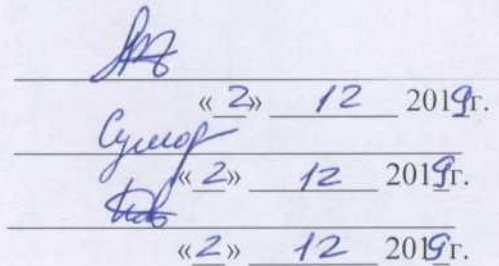 « 2 » 12 2019г.
« 2 » 12 2019г.
« 2 » 12 2019г.